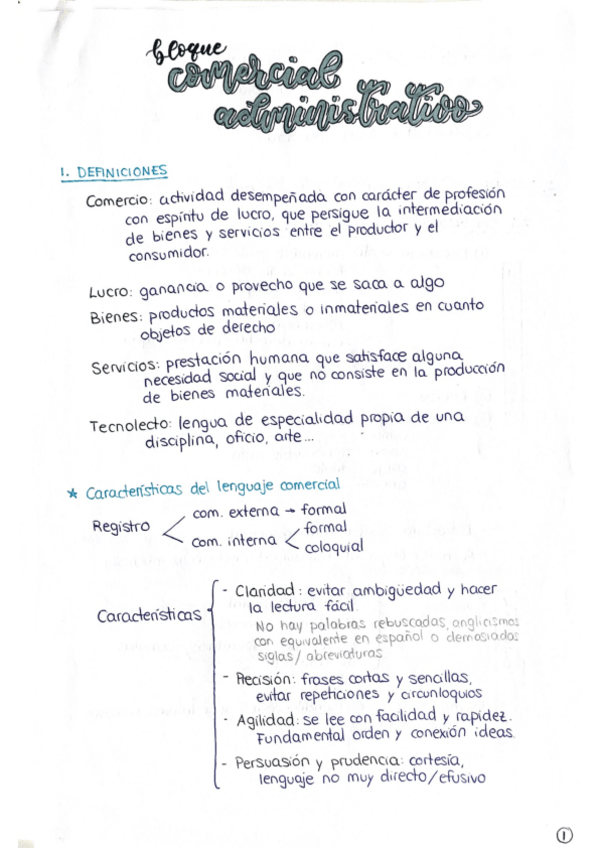 bloque
comercial
administrativo
1. DEFINICIONES
Comercio: actividad desempeñada con carácter de profesión
con espíritu de lucro, que persigue la intermediación
de bienes y servicios entre el productor y el
consumidor.
Lucro: ganancia o provecho que se saca a algo
Bienes: productos materiales o inmateriales en cuanto
objetos de derecho
Servicios: prestación humana que satisface alguna
necesidad social y que no consiste en la producción
de bienes materiales.
Tecnolecto: lengua de especialidad propia de una
disciplina, oficio, arte...
* Características del lenguaje comercial
Registro
com. externa → formal
com. interna
formal
coloquial
Características
- Claridad: evitar ambigüedad y hacer
la lectura fácil.
No hay palabras rebuscadas, anglicismos
con equivalente en español o demasiadas
siglas/abreviaturas
- Precisión: frases cortas y sencillas,
evitar repeticiones y circunloquios
- Agilidad: se lee con facilidad y rapidez.
Fundamental orden y conexión ideas.
- Persuasión y prudencia: cortesía,
lenguaje no muy directo/efusivo
1